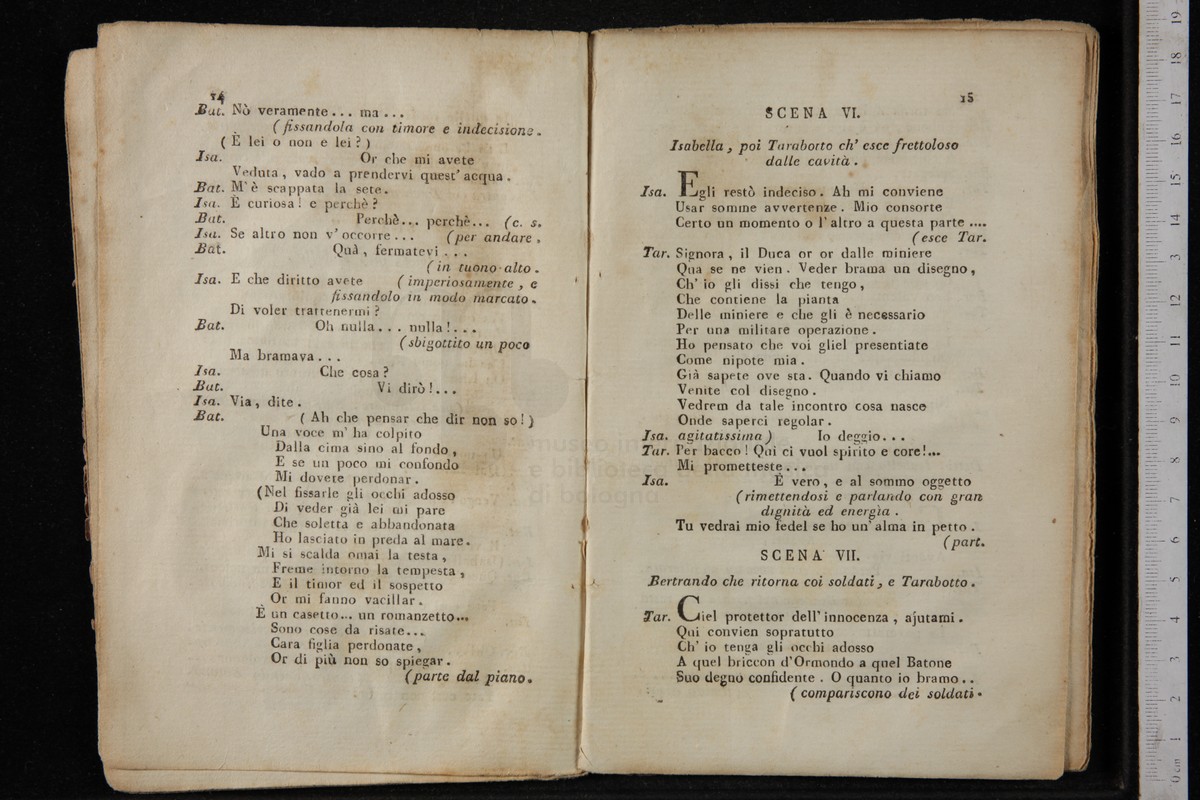 14
Bat. Nò veramente... ma...
(fissandola con timore e indecisione.
( E lei o non e lei ? )
Isa. Or che mi avete
Veduta, vado a prendervi quest' acqua.
Bat. M' è scappata la sete.
Isa. È curiosa! e perchè?
Bat. Perchè... perchè... (c. s.
Isa. Se altro non v' occorre... (per andare.
Bat. Quà, fermatevi...
(in tuono alto.
Isa. E che diritto avete (imperiosamente, e
fissandolo in modo marcato.
Di voler trattenermi?
Bat. Oh nulla... nulla!...
(sbigottito un poco
Ma bramava...
Isa. Che cosa?
Bat. Vi dirò!...
Isa. Via, dite.
Bat. ( Ah che pensar che dir non so! )
Una voce m' ha colpito
Dalla cima sino al fondo,
E se un poco mi confondo
Mi dovete perdonar.
(Nel fissarle gli occhi adosso
Di veder già lei mi pare
Che soletta e abbandonata
Ho lasciato in preda al mare.
Mi si scalda omai la testa,
Freme intorno la tempesta,
E il timor ed il sospetto
Or mi fanno vacillar.
È un casetto... un romanzetto...
Sono cose da risate...
Cara figlia perdonate,
Or di più non so spiegar.
(parte dal piano.
15
SCENA VI.
Isabella, poi Tarabotto ch' esce frettoloso
dalle cavità.
Isa. Egli restò indeciso. Ah mi conviene
Usar somme avvertenze. Mio consorte
Certo un momento o l' altro a questa parte ....
(esce Tar.
Tar. Signora, il Duca or or dalle miniere
Qua se ne vien. Veder brama un disegno,
Ch' io gli dissi che tengo,
Che contiene la pianta
Delle miniere e che gli è necessario
Per una militare operazione.
Ho pensato che voi gliel presentiate
Come nipote mia.
Già sapete ove sta. Quando vi chiamo
Venite col disegno.
Vedrem da tale incontro cosa nasce
Onde saperci regolar.
Isa. agitatissima) Io deggio...
Tar. Per bacco! Qui ci vuol spirito e core!...
Mi prometteste...
Isa. È vero, e al sommo oggetto
(rimettendosi e parlando con gran
dignità ed energia.
Tu vedrai mio fedel se ho un' alma in petto.
(part.
SCENA VII.
Bertrando che ritorna coi soldati, e Tarabotto.
Tar. Ciel protettor dell' innocenza, ajutami.
Qui convien sopratutto
Ch' io tenga gli occhi adosso
A quel briccon d'Ormondo a quel Batone
Suo degno confidente. O quanto io bramo..
(compariscono dei soldati.